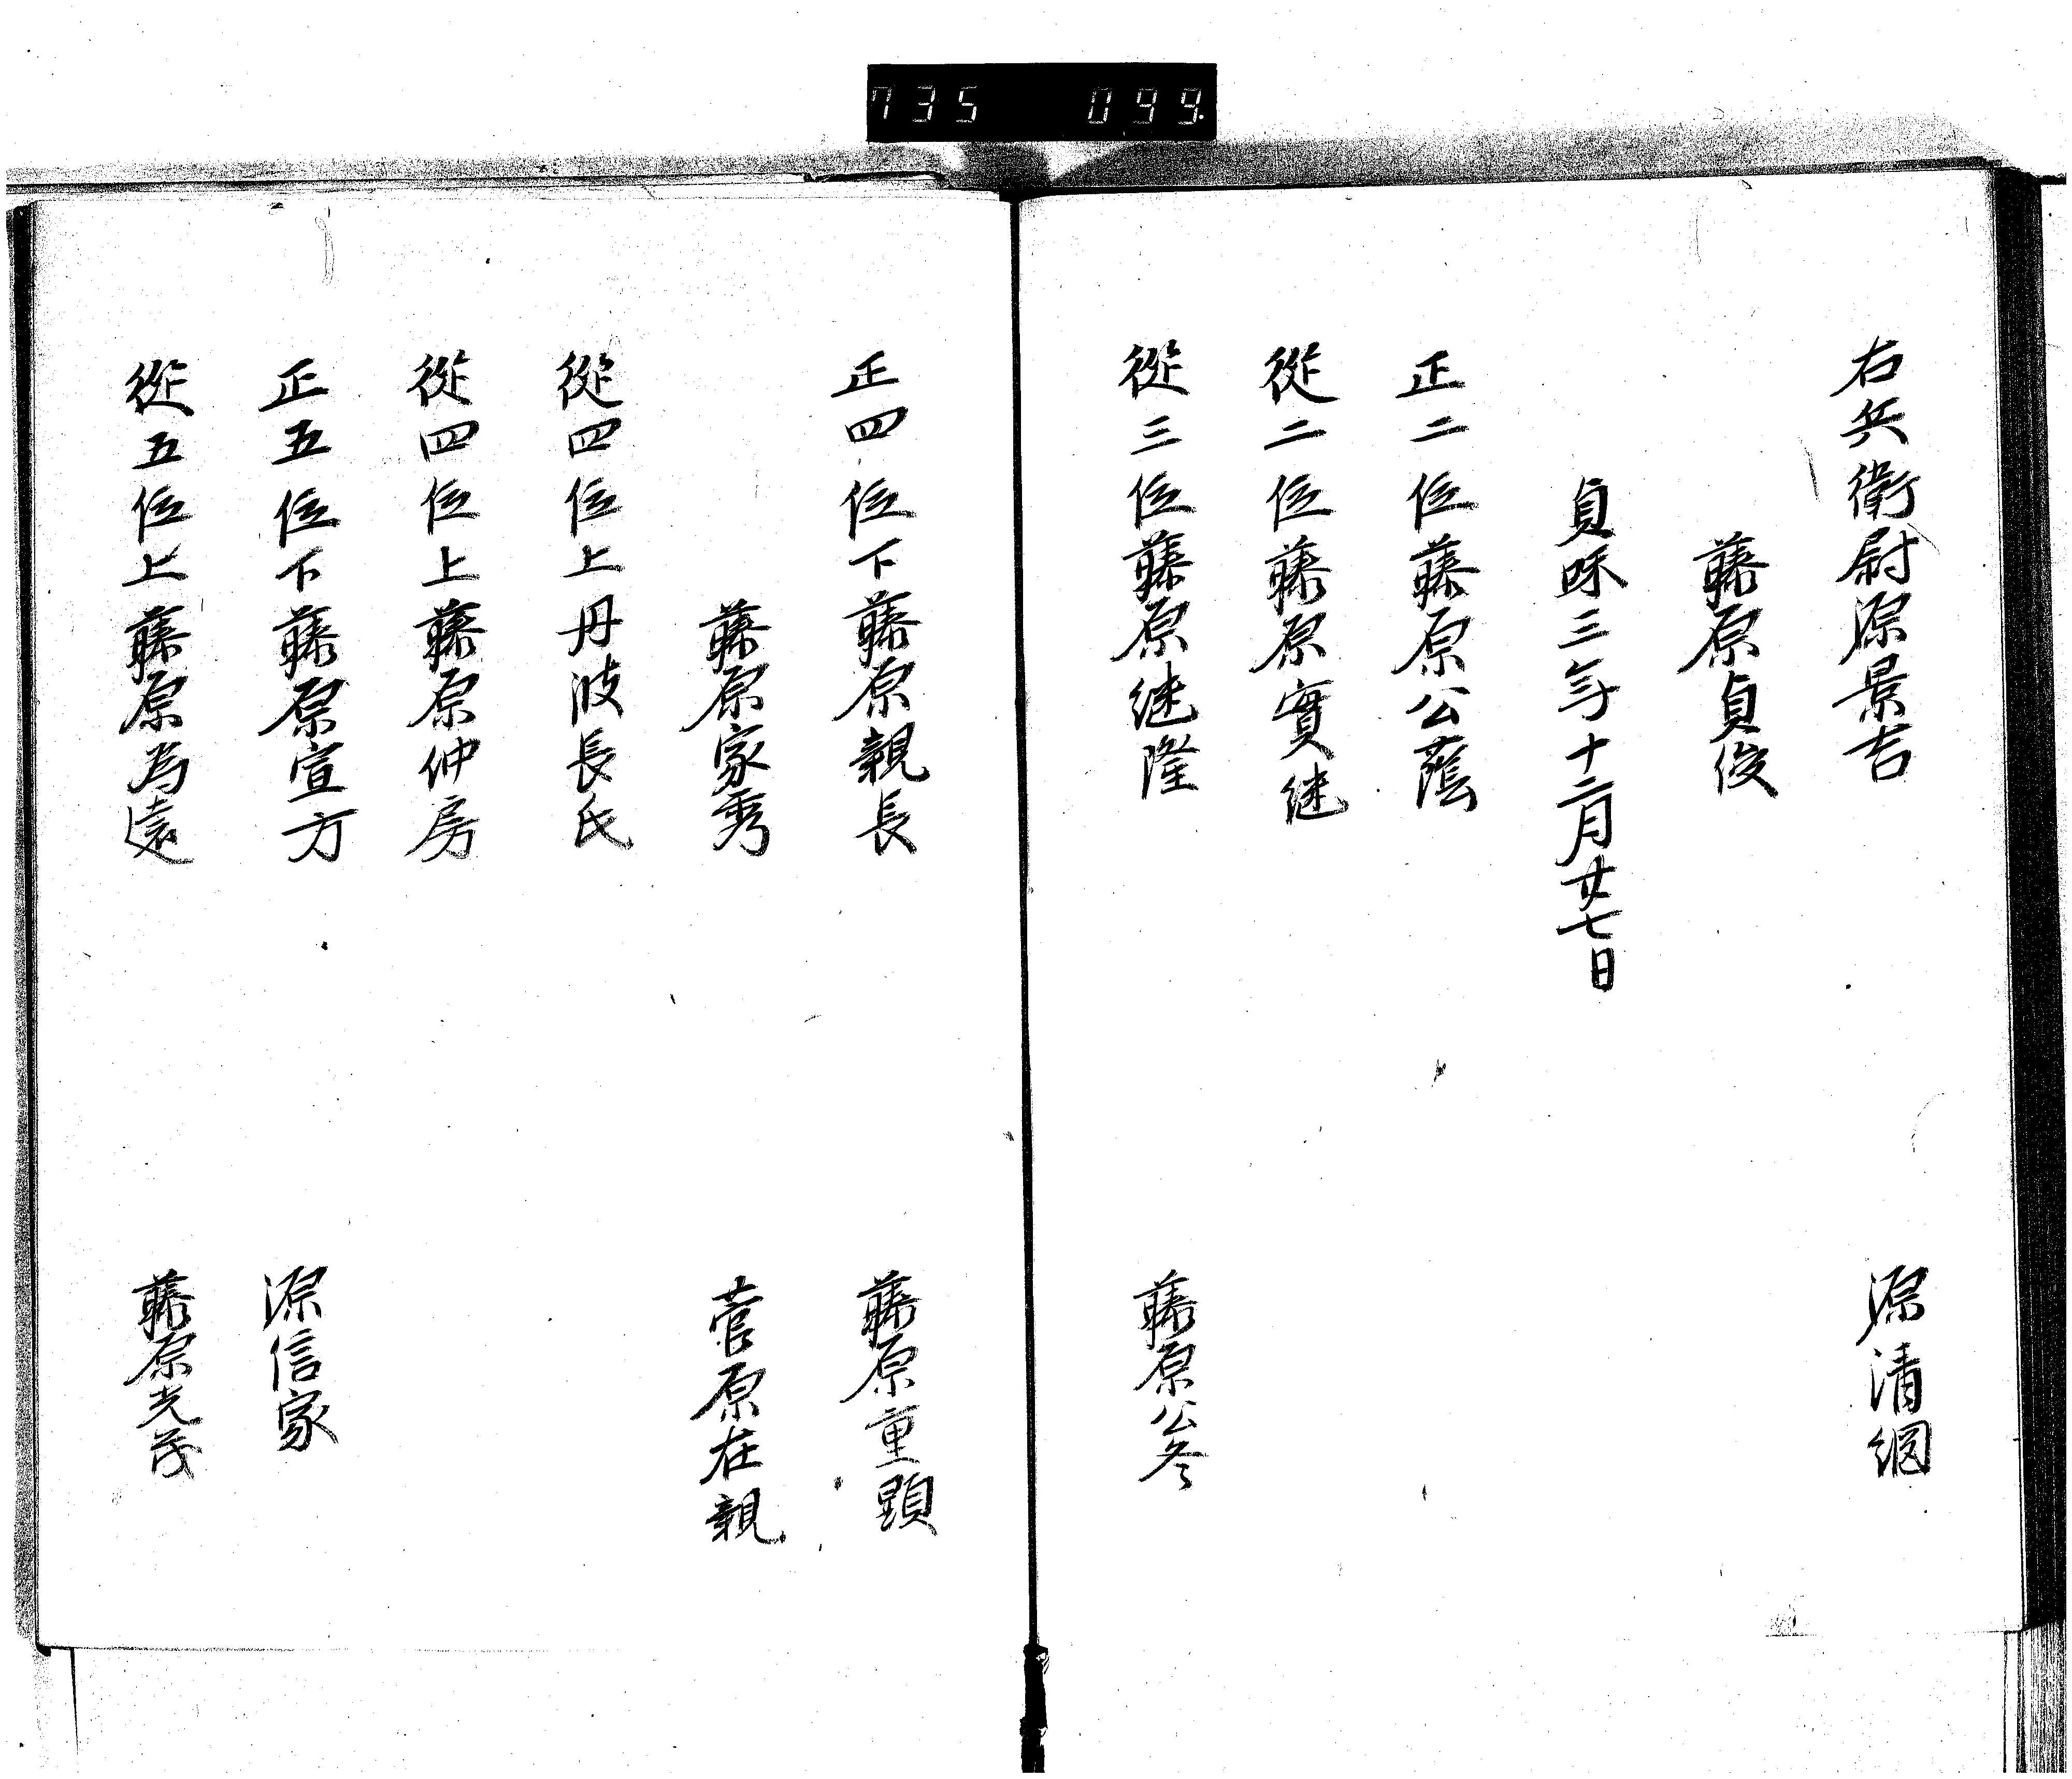 735 099.
右兵衛尉源景吉 源清綱
藤原貞俊
貞和三年十二月廿七日
正二位藤原公蔭
從二位藤原實継
從三位藤原継隆 藤原公冬
正四位下藤原親長 藤原重顕
藤原家秀 菅原在親
從四位上丹波長氏
從四位上藤原仲房
正五位下藤原宣方 源信家
從五位上藤原為遠 藤原光茂